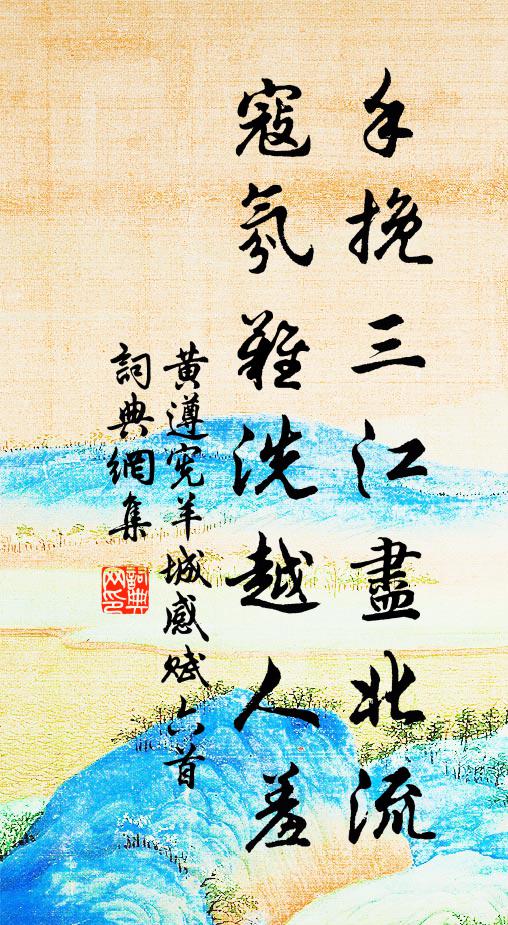 手挽三江盡北流
寇氛難洗越人羞
黄遵宪羊城感賦六首
詞典網集
詞典網印